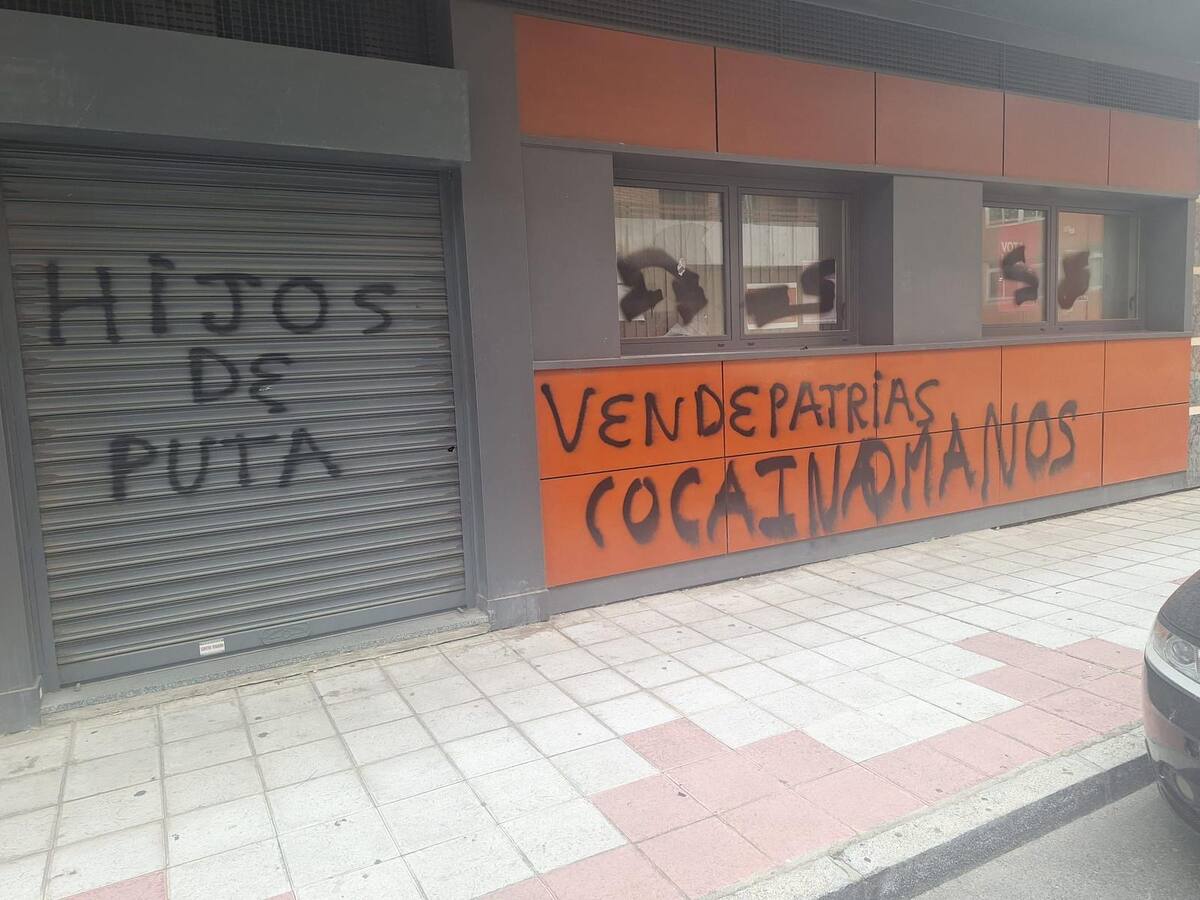 HIJOS
DE
PUTA
VENDEPATRIAS
COCAINOMANOS
VOT